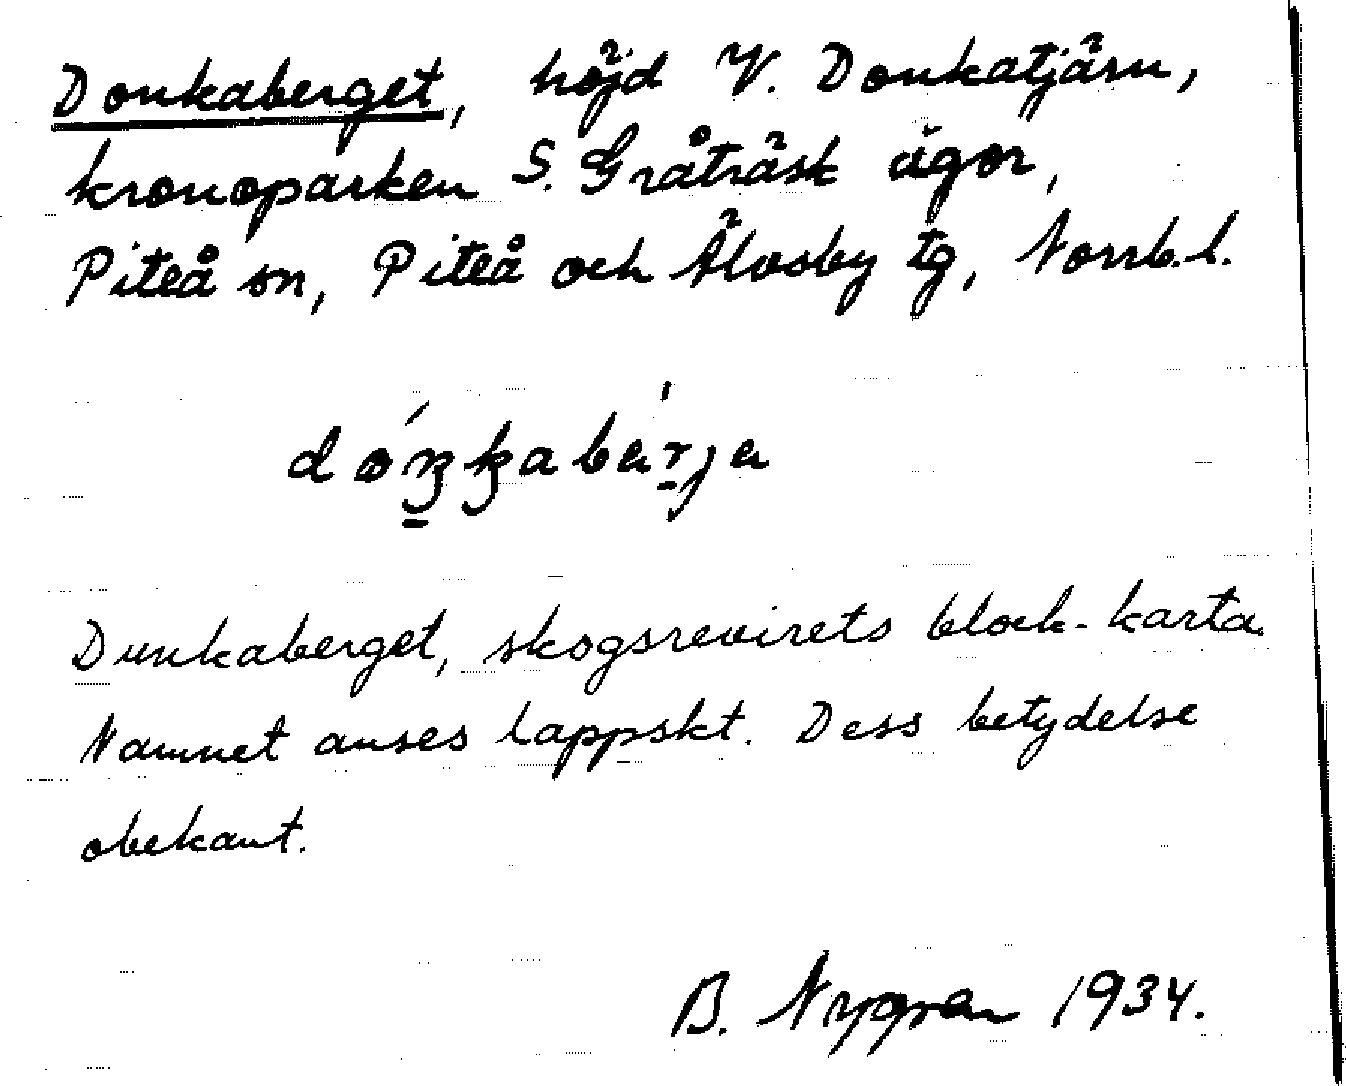 Donkaberget, höjd V. Donkatjärn,
kronoparken S. Gråträsk ägor,
Piteå sn, Piteå och Älvsby tg, Norrb. l.
Dunkaberget, skogsrevirets block-karta.
Namnet anses lappskt. Dess betydelse
obekant.
B. Nygren 1934.